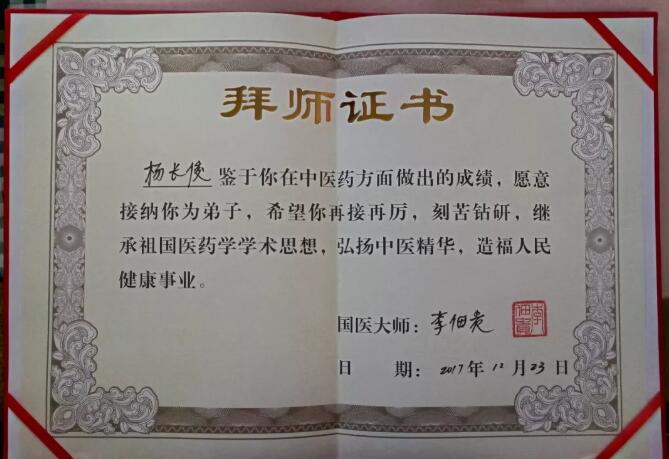 拜师证书
杨长俊 鉴于你在中医药方面做出的成绩，愿意
接纳你为弟子，希望你再接再厉，刻苦钻研，继
承祖国医药学学术思想，弘扬中医精华，造福人民
健康事业。
国医大师：李佃贵
李佃貴
日 期：2017年12月23日